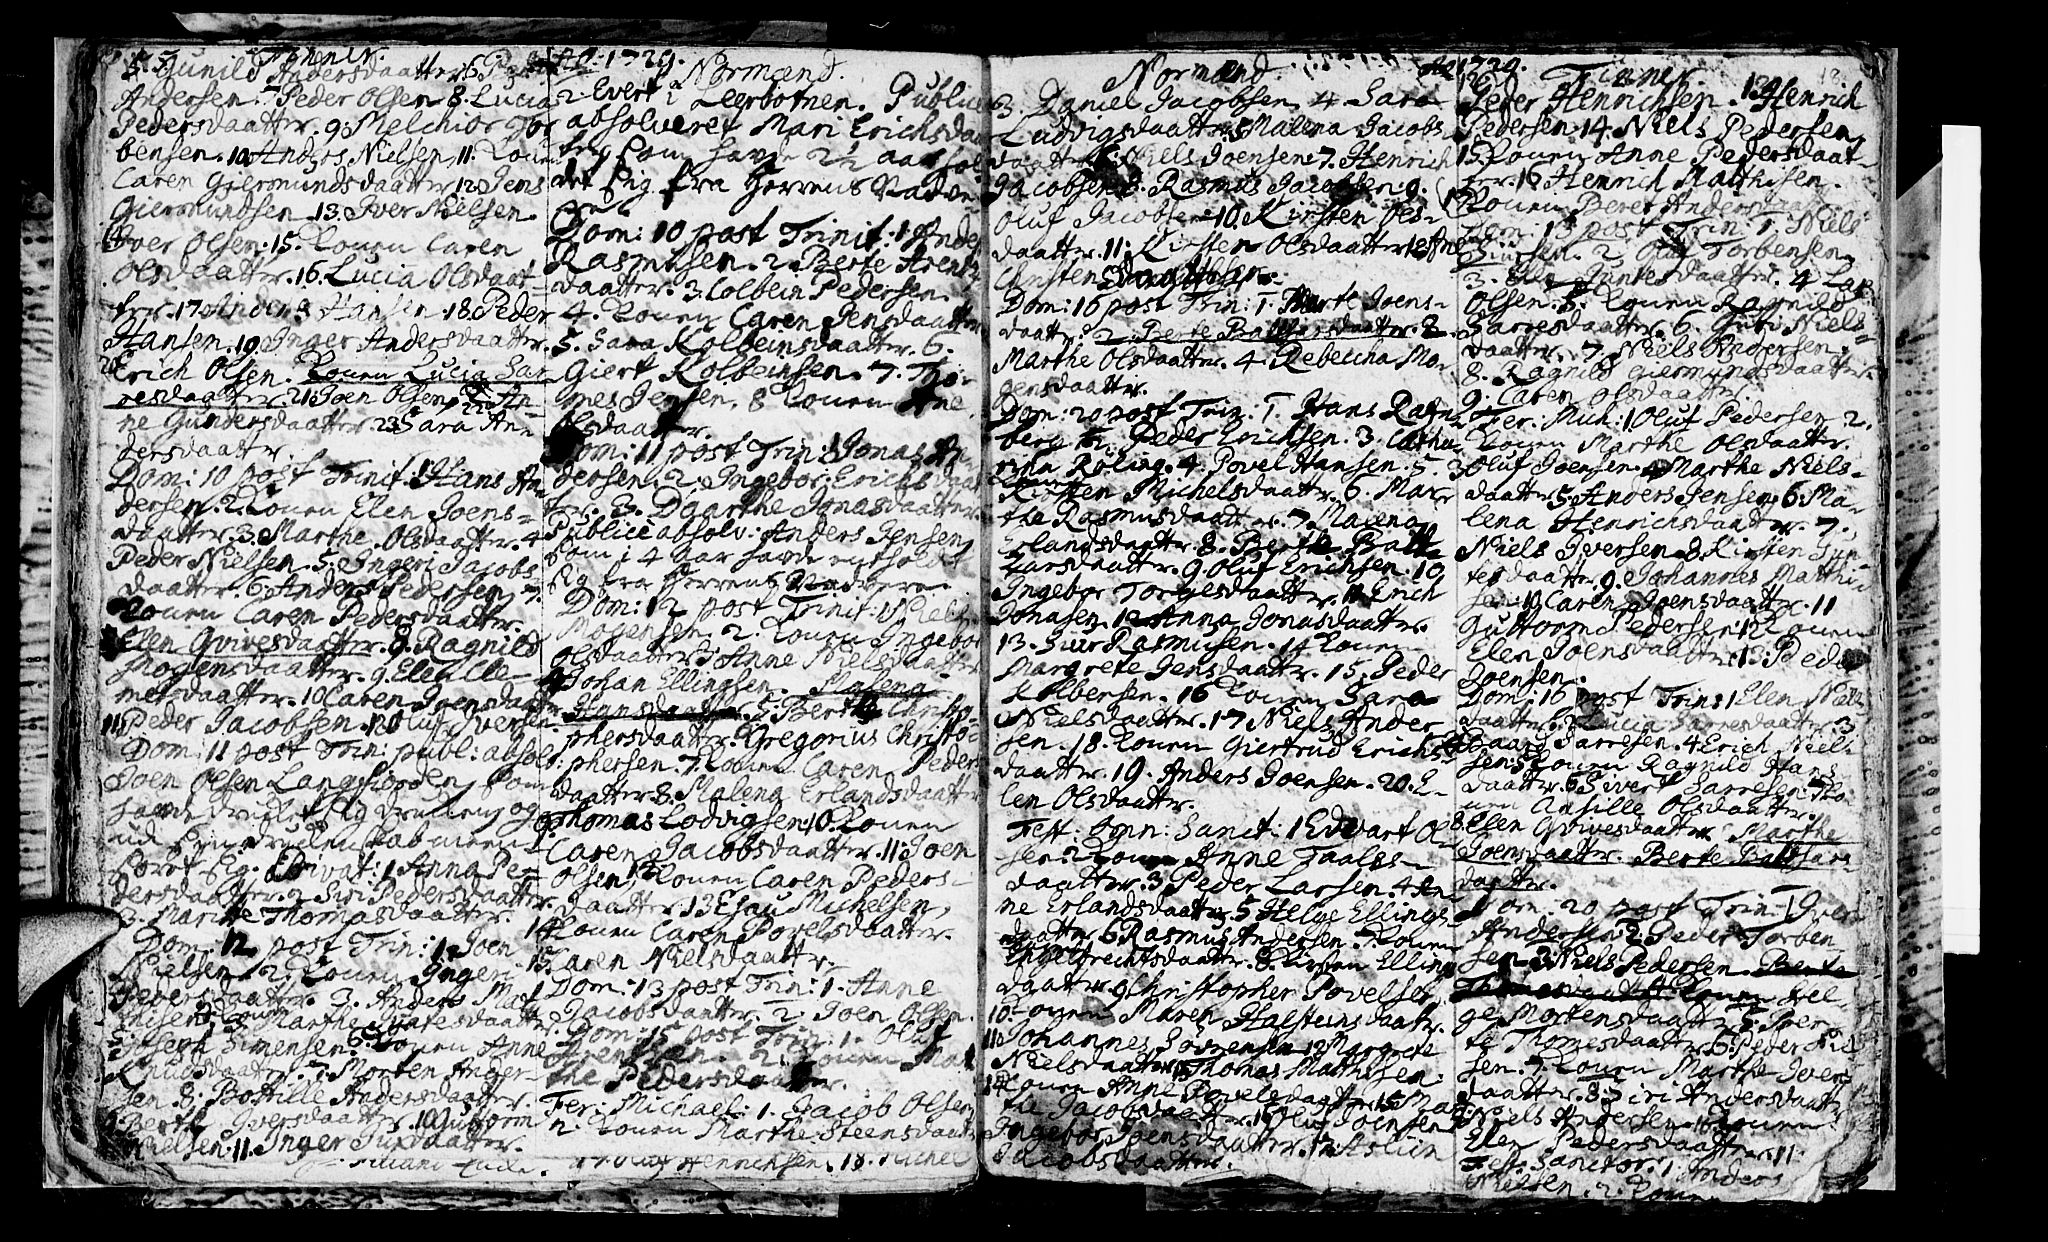 Fiønner.
5. Gunild Andersdaatter. 6. Peder
Andersen. 7. Peder Olsen 8. Lucia
Pedersdaatter. 9. Melchior Tor
bensen. 10 Anders Nielsen. 11. Konen
Caren Giermundsdaatter. 12 Jens
Giermundsen. 13. Iver Nielsen.
14 Iver Olsen. 15. Konen Caren
Olsdaatter. 16. Lucia Olsdaat-
ter. 17 Anders Hansen. 18. Peder
Hansen. 19. Inger Andersdaatter.
20 Erich Olsen. Konen Lucia Sar
resdaatter. 21. Joen Olsen. 22 An-
ne Gundersdaatter. 23 Sara An-
dersdaatter.
Dom: 10 post Trinit: 1 Hans An
dersen. 2. Konen Elen Joens-
daatter. 3. Marthe Olsdaatter. 4
Peder Nielsen. 5. Ingeri Jacobs
daatter. 6. Anders Pedersen. 7.
Konen Caren Pedersdaatter.
Elen Qvivesdaatter. 9. Ragnild
Mogensdaatter. 9.
metsdaatter. 10 Caren Joensdaatter
11 Peder Jacobsen. 12 Oluf Iversen
Dom: 11 post Trin: publ: absol
Joen Olsen Langfiorden, som
havde drukket sig drucken og
ud
fort sig. Privat: 1 Anna Pe-
dersdaatter. 2 Siri Pedersdaatter.
3. Marite Thomasdaatter.
Dom: 12 post Trin: 1. Joen
Nielsen. 2. Konen Ingeri
Pedersdaatter. 3. Anders Mat
thisen. 4 Konen Marthe
5. Joseph Simensen. 6. Konen Anne
Knudsdaatter. 7. Morten Anger-
sen 8. Botille Andersdaatter.
9. Berte Iversdaatter. 10 Guttorm
Nielsen. 11. Inger
Ao: 1729.
Normænd.
2. Evert i Leerbotnen. Publice
absolveret Mari Erichsdaa
ter som havde 2½ aar hol
det sig fra Herrens Nadve
re.
Dom: 10 post Trinit: 1. Ander
Rasmusen. 2. Berte Arents
daatter. 3. Colbein Pedersen.
4. Konen Caren Jensdaatter
5. Sara Kolbeinsdaatter. 6.
Giert Kolbeinsen. 7. Tho-
mes Jensen. 8 Konen Ane
Olsdaatter.
Dom: 11 post Trin: 1 Jonas An
dersen. 2. Ingebor Erichsdaat
ter. 3. Dorthe Jonasdaatter.
Publice absolv: Anders Jensen
som i 4 aar havde entholdt
sig fra Herrens Nadvere
Dom: 12 post Trinit: 1 Niels
Mogensen 2. Konen Ingebor
Olsdaatter. 3 Anne Nielsdaatter
4 Johan Ellingsen. Malena
Hansdaatter. 5. Berte Christo-
phersdaatter. 6 Gregorius Christo-
phersen. 7. Konen Caren Peder
daatter. 8. Malena Erlandsdaatter
9. Thomas Lodvigsen. 10. Konen
Caren Jacobsdaatter. 11. Joen
Olsen. 12 Konen Caren Peders-
daatter. 13 Esau Michelsen,
14 Konen Caren Povelsdaatter.
15. Caren Nielsdaatter.
Dom: 13 post Trin: 1. Anne
Jacobsdaatter. 2. Joen Olsen.
Dom: 15 post Trin: 1. Oluf
Arentsen. 2. Konen Mar
the Pedersdaatter.
Fer: Michael: 1. Jacob Olsen
2. Konen Marthe Steensdaatt
Henrichsen. 18. Michel
Normænd.
3. Daniel Jacobsen 4. Sara
Ludvigsdaatter. 5 Malena Jacobs
daatter. 6. Niels Joensen. 7. Henrich
Jacobsen. 8. Rasmus Jacobsen. 9.
Oluf Jacobsen. 10. Kirsten Ols-
daatter. 11. Kirsten Olsdaatter. 12 An
Christensdaatter.
Dom: 16 post Trin: 1. Marte Joens-
daatter. 2. Berte Baltzersdaatter. 3.
Marthe Olsdaatter. 4. Rebecha Mo
gensdaatter.
Dom: 20 post Trin. 1. Hans Rafn
berg. 2. Peder Erichsen. 3. Catha-
rina Röling. 4. Povel Hansen. 5.
Konen Kirsten Michelsdaatter. 6. Mar-
the Rasmusdaatter. 7. Malena
Erlandsdaatter. 8. Berthe Balt-
zarsdaatter. 9. Oluf Erichsen. 10
Ingebor Torgesdaatter. 11. Erich
Jonasen. 12 Anna Jonasdaatter.
13. Siur Rasmusen. 14 Konen
Margrete Jensdaatter. 15. Peder
Kolbersen. 16 Konen Sara
Nielsdaatter. 17 Niels Ander
sen. 18. Konen Giertrud Erichs-
daatter. 19. Anders Joensen. 20. E-
len Olsdaatter.
Fest: Omn: Sanct: 1 Edvart Ol
sen. 2 Konen Anne Taales-
daatter. 3 Peder Larsen. 4 An-
ne Erlandsdaatter. 5 Helge Ellings
daatter. 6 Rasmus Andersen. 7. Konen
Engelbrechtsdaatter. 8. Kirsten Elling
daatter. 9 Christopher Povelsen
10. Konen Maren Halsteinsdaatt.
11. Johannes Sørensen. 12 Margrete
Nielsdaatter. 13 Thomas Mathisen.
14 Konen Anne Povelsdaatter. 15. Mar
the Jacobsdaatter. 16 Oluf Joensen
Ingebor Joensdaatter. 17 Aslein
Jacobsdaatter.
Ao 1729.
Fiønner.
12 Peder Henrichsen. 13. Henrich
Pedersen. 14. Niels Pedersen,
15. Konen Anne Pedersdaat-
ter. 16 Henrich Matthisen.
17 Konen Beret Andersdaatter
Dom: 13 post Trin: 1. Niels
Siursen. 2. Oluf Torbensen
3. daatter. 4 Lar
Olsen. 5. Konen Ragnild
Sarresdaatter. 6. Guri Niels-
daatter. 7. Niels Andersen.
8. Ragnild Giermundsdaatter.
9. Caren Olsdaatter.
Fer: Mich: 1 Oluf Pedersen 2.
Konen Marthe Olsdaatter.
3 Oluf Joensen. 4 Marthe Niels-
daatter. 5. Anders Jensen. 6. Ma-
lena Henrichsdaatter. 7.
Niels Iversen. 8. Kirsten
daatter. 9. Johannes Matthi
sen. 10 Caren Joensdaatter. 11
Guttorm Pedersen. 12 Konen
Elen Joensdaatter. 13. Peder
Joensen.
Dom: 16 post Trin: 1 Elen Niels
daatter. 2 Lucia Sarresdaatter. 3
Baard Sarresen. 4 Erich Niel-
sen. 5 Konen Ragnild Hans
daatter. 6 Sivert Sarresen. 7 Ko-
nen Olsdaatter.
8. Elen Qvivesdaatter. Marthe
Joensdaatter. Berte Baltzars
daatter.
Dom: 20 post Trin: 1 Iver
Andersen. 2. Peder Torben-
sen. 3. Niels Pedersen. Berte
Thomesdaatter. Konen Hel
ge Mortensdaatter. 5. Ber-
te Thomesdaatter. 6. Peder Niel
sen. 7. Konen Marthe Ivers
daatter. 8. Siri Andersdaatter
9. Niels Andersen. 10. Konen
Elen Pedersdaatter. 11.
Fest: Sanctor: 1. Anders
Nielsen. 2. Konen